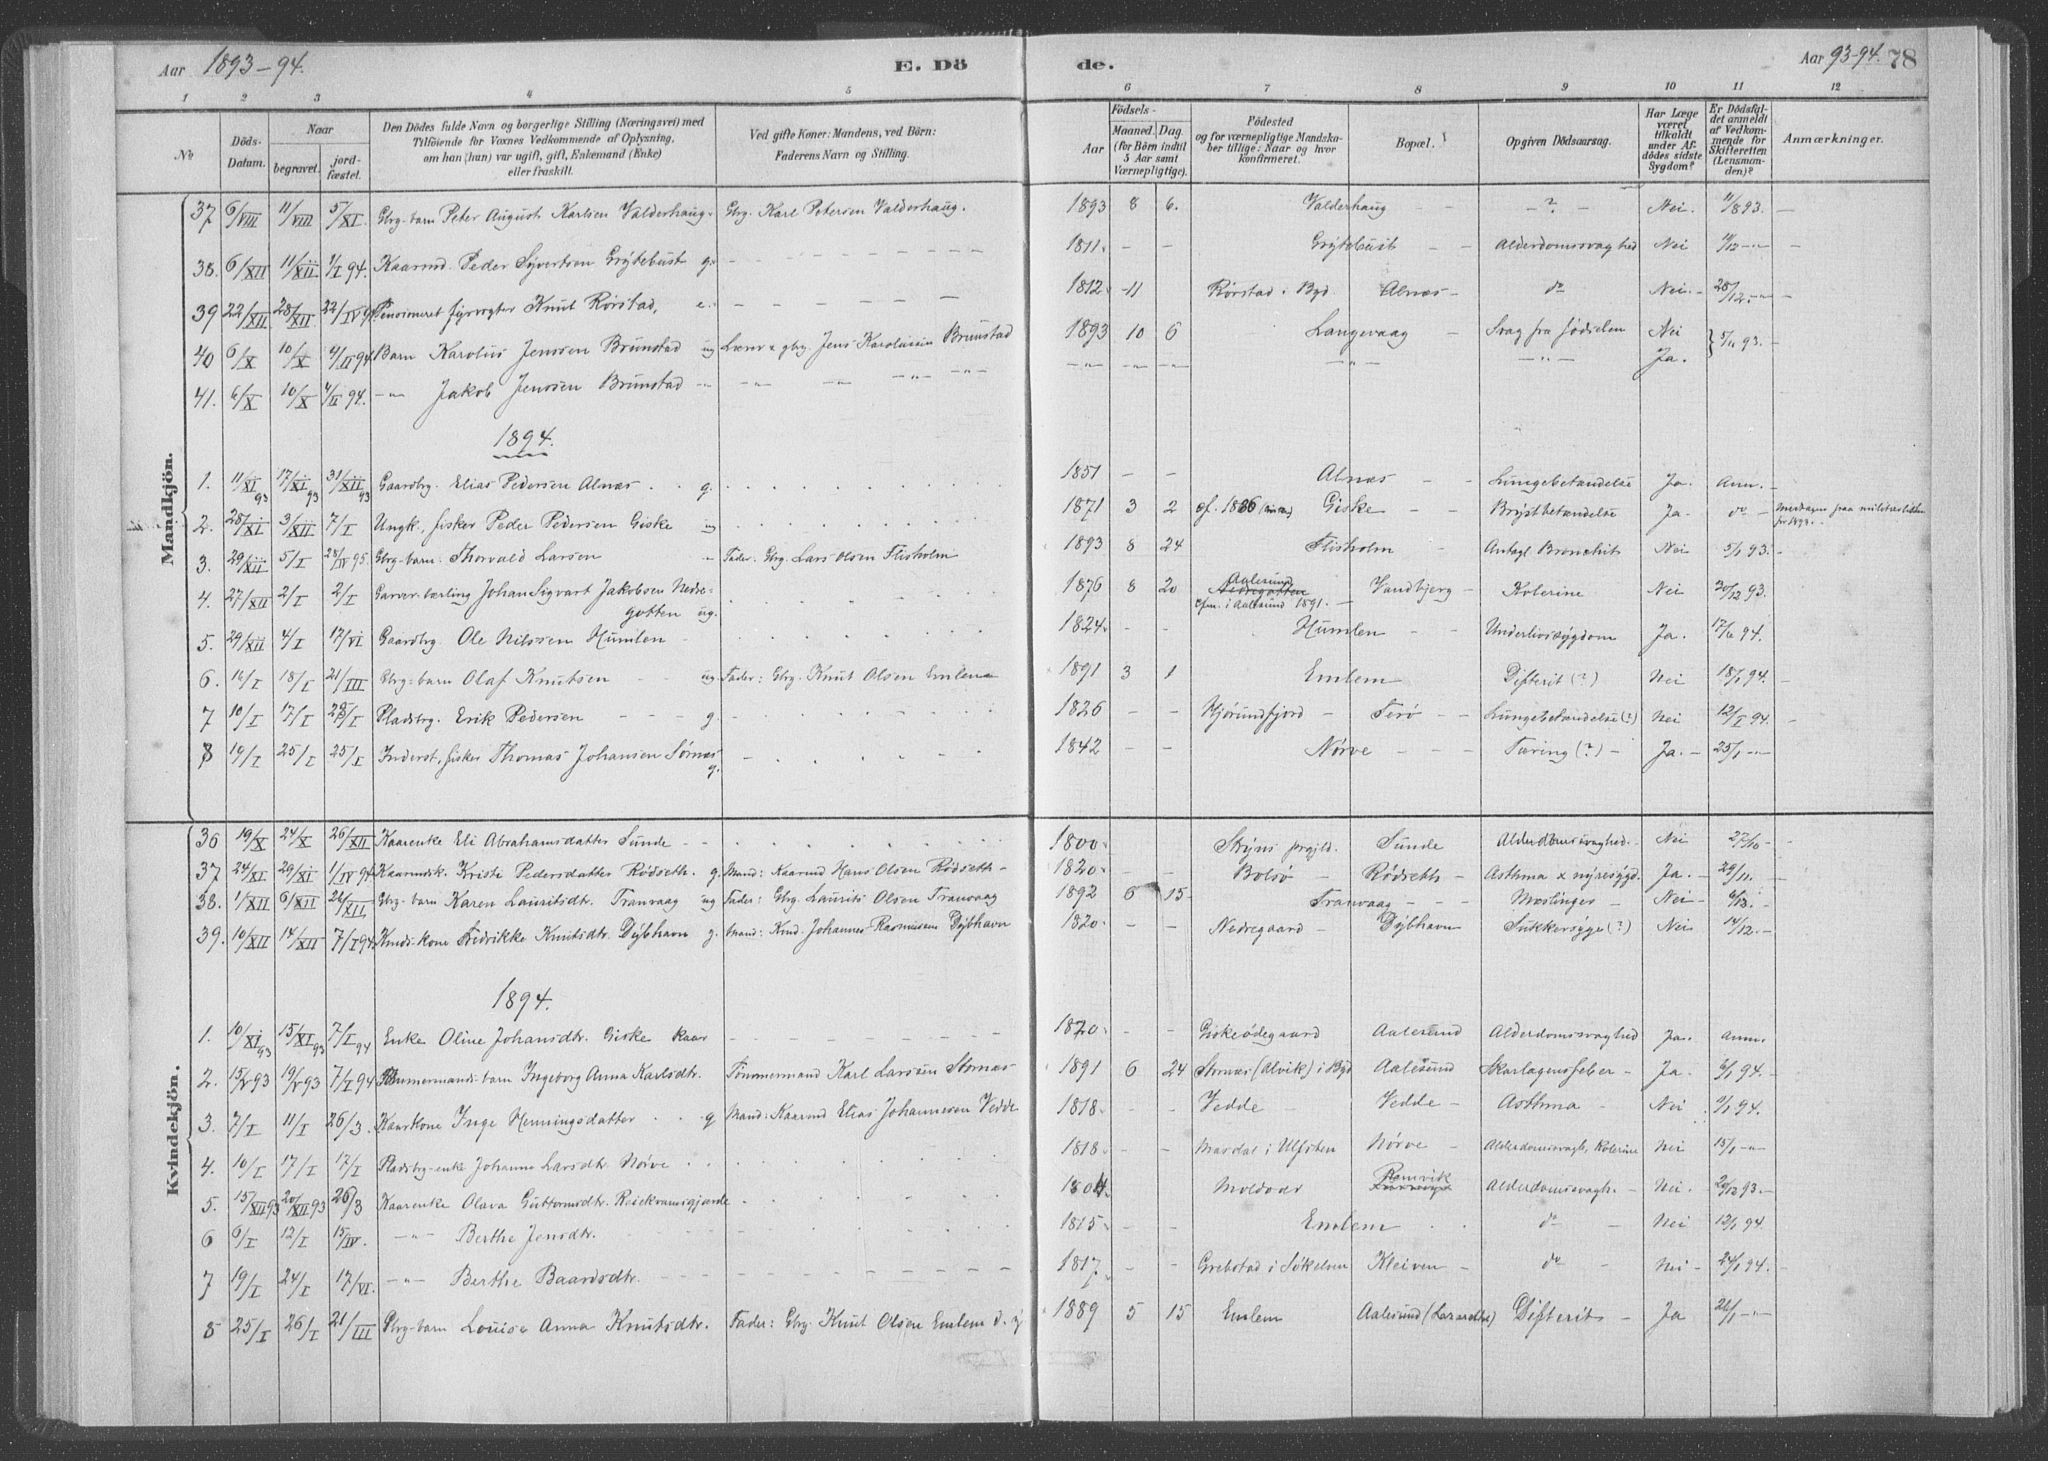 Aar 1893-94. E. Dö de. Aar 93-94. 78
1 2 3 4 5 6 7 8 9 10 11 12
No
Döds-Datum.
Naar
begravet.
jord-fæstet.
Den Dödes fulde Navn og borgerlige Stilling (Næringsvei) med
Tilföiende for Voxnes Vedkommende af Oplysning,
om han (hun) var ugift, gift, Enkemand (Enke)
eller fraskilt.
Ved gifte Koner: Mandens, ved Börn:
Faderens Navn og Stilling.
Födsels-
Aar
Maaned. Dag.
(for Börn indtil
5 Aar samt
Værnepligtige).
Födested
og for værnepligtige Mandska-
ber tillige: Naar og hvor
konfirmeret.
Bopæl.
Opgiven Dödsaarsag.
Har Læge
været
tilkaldt
under Af-
dödes sidste
Sygdom?
Er Dödsfal-
det anmeldt
af Vedkom-
mende for
Skifteretten
(Lensman-
den)?
Anmærkninger.
Mandkjön.
37 6/VIII 11/VIII 5/XI. Gbrg-barn Peter August Karlsen Valderhaug. Gbrg. Karl Petersen Valderhaug. 1893 8 6. Valderhaug - ? - Nei. 11/8 93. -
38. 6/XII 11/XII 1/I 94. Kaarmd. Peder Syvertsen Grytebust g. 1811. - - Grytebust - - Alderdomssvaghed Nei 11/12 -"- -
39 22/XII 28/XII 22/IV 94 Pensioneret fyrvogter Knut Rörstad, e. 1812 - 11 Rörstad i Byd Alnæs - do Nei. - 28/12 -"-
40 6/X 10/X 4/II 94 Barn Karolus Jenssen Brunstad ug Lærer & gbrg. Jens Karolussen Brunstad 1893 10 6 Langevaag - Svag fra fødselen Nei } 5/11 93. -
41. 6/X 10/X 4/II 94. -"- Jakob Jenssen Brunstad -"- -"- -"- -"- -"- -"- -"- -"- -"- -"- Ja.
1894.
1. 11/XI 93 17/XI 93 31/XII 93 Gaardbg. Elias Pedersen Alnæs . . g. 1851 - - Alnæs - - Lungebetændelse Ja. Anm. -
2. 28/XI 3/XII 7/I Ungk., fisker Peder Pedersen Giske ug 1871 3 2 cf. 1886 Giske - Brystbetændelse Ja. do -
3. 29/XII 5/I 28/IV 95. Gbrg-barn. Thorvald Larsen - Fader. Gbrg. Lars Olsen Flisholm 1893 8 24 Flisholm - Antagl. Bronchit Nei 5/1 93. -
4. 27/XII 2/I 2/I Garver-lærling Johan Sigvart Jakobsen Nedre-
gotten ug. 1876 8 20 Aalesund Nedregotten cfm. i Aalesund 1891. - Vandbjerg - Kolerine Nei 20/12 93. -
5. 29/XII 4/I 17/VI Gaardbg. Ole Nilssen Humlen - 1824. - - Humlen - - Underlivssygdom Ja. 17/6 94. -
6. 16/I 18/I 21/III Gbrg-barn Olaf Knutsen - - ug. Fader: Gbrg. Knut Olsen Emlem 1891 3 1 Emlem Difterit (?) Nei 18/1 94. -
7 10/I 17/I 28/I Pladsbg. Erik Pedersen - - - g. 1826 - - Hjørundfjord - Terø - - Lungebetændelse(?) Nei 12/I 94. -
8 19/I 25/I 25/I Inderst, fisker Thomas Johansen Sørnæs g. 1842 - - Nørve - - - Tæring (?) - Ja. - 25/1 -"-
Kvindekjön.
36 19/X 24/X 26/XII Kaarenke Eli Abrahamsdatter Sunde - - 1800. - - Stryns prgjld. Sunde Alderdomssvaghed. - Nei 27/10 -
37 24/XI 29/XI 1/IV 94 Kaarmdsk. Kriste Pedersdatter Rødseth. g. Mand: Kaarmd Hans Olsen Rødseth - 1820. - - Bolsø - Rødseth - Asthma & nyresygd. Ja. - 29/11. -
38. 1/XII 6/XII 26/XII Gbrg-barn Karen Lauritsdtr. Tranvaag ug Fader: Gbrg. Laurits Olsen Tranvaag 1892 6 15 - Tranvaag - - - Mæslinger - Nei - 6/12. -
39. 10/XII 14/XII 7/I 94. Kmds-kone Fredrikke Knutsdtr. Dybhavn g. Mand: Kmd. Johannes Rasmussen Dybhavn 1820. - - Nedregaard - Dybhavn Sukkersyge (?) Nei 14/12. -
1894.
1. 10/XI 93 15/XI 93 7/I 94 Enke Oline Johansdtr. Giske kaar 1820. - - Giskeødegaard Aalesund Alderdomssvaghed Ja. Anm. -
2. 15/V 93 19/V 93 7/I 94 Tømmermands-barn Ingeborg Anna Karlsdtr. Tømmermand Karl Larsen Stornæs 1891 6 24 Stornæs (Alvik) i Byd Aalesund Skarlagensfeber - Ja 6/1 94. -
3. 7/I 11/I 26/3 Kaarkone Inge Henningsdatter . . g Mand: Kaarmd Elias Johannesen Vedde 1818. - - Vedde - Vedde - Asthma - Nei 1/1 94. -
4. 10/I 17/I 17/I Pladsbg-enke Johanne Larsdtr. Nørve 1818. - - Mardal i Ulfsten Nørve - Alderdomssvagh, Kolerine Nei 15/1 -"-
5. 15/XII 93 20/XII 93 26/3 Kaarenke Olava Guttormsdtr. Reiekvamsgjærde 1804 Moldvær Ramvik Alderdomssvagh. - Nei. 20/12 93. -
6 6/I 12/I 15/IV. -"- Berthe Jensdtr. 1815. - - Emlem . . do - Nei 12/1 94. -
7 19/I 24/I 17/VI. -"- Berthe Baardsdtr. 1817. - - Grebstad i Søkelven Kleiven - do Nei - 24/1 94. -
8 25/I 26/I 21/III Gbrg-barn Louise Anna Knutsdtr. Fader: Gbrg. Knut Olsen Emlem d. y 1889 5 15 Emlem Aalesund (Lazarethet) Difterit - Ja 26/1 -"-